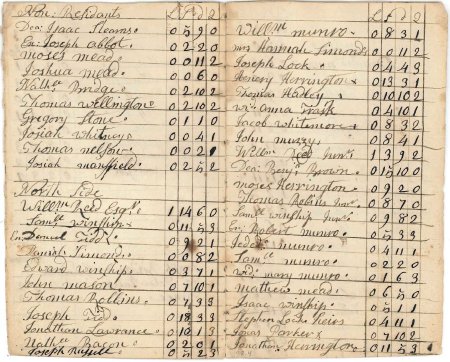 Non: Residants £ s d 2
Dea: Isaac Stearns. 0 5 9 0
En: Joseph abbot. 0 2 2 0
moses mead. 0 0 11 2
Joshua mead. 0 0 6 0
Nathll Bridge 0 2 10 2
Thomas wellington 0 2 10 2
Gregory Stone 0 1 1 0
Josiah whitney 0 0 4 1
Thomas nelson 0 0 2 1
Josiah mansfield. 0 2 5 2
North Side
Willm Reed Esqr. 1 14 6 0
Samll winship 0 11 5 3
Daniel Tidd
Simonds 0 0 8 2
Edward winship. 0 3 7 1
John mason 0 7 10 1
Thomas Rollins
Joseph 0 18 3 3
Jonathan Lawrance. 0 10 1 3
Nathll Bacon 0 2 0 1
Joseph Russell 0 5 2 3
£ s d 2
Willm munro 0 8 3 1
Hannah Simonds 0 0 11 2
Joseph Lock. 0 4 4 3
Henery Herrington 0 13 3 1
Thomas Hadley 0 10 10 2
anna Trask 0 4 10 1
Jacob whitemore 0 8 3 2
John muzzy 0 8 4 1
Reed Junr. 1 3 9 2
Dea: Benj. Brown. 0 15 10 0
moses Herrington 0 9 2 0
Thomas Robins 0 8 7 0
Samll winship Junr. 0 9 8 2
En: Robert munro 0 5 3 3
munro 0 4 11 1
Samll munro 0 2 2 0
mary munro 0 1 6 3
mathew mead 0 6 5 0
Isaac winship 0 5 1 1
Stephen Locks heirs 0 4 11 1
Jonas Parker 0 7 10 2
Jonathan Herrington 0 11 5 3